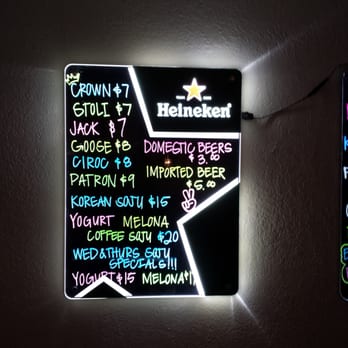 CROWN $7
STOLI $7
JACK $7
GOOSE $8
CIROC $8
PATRON $9
Heineken
DOMESTIC BEERS
$3.00
IMPORTED BEER
$5.00
KOREAN SOJU $15
YOGURT MELONA
COFFEE SOJU $20
WED & THURS SOJU
SPECIALS!!!
YOGURT $15 MELONA